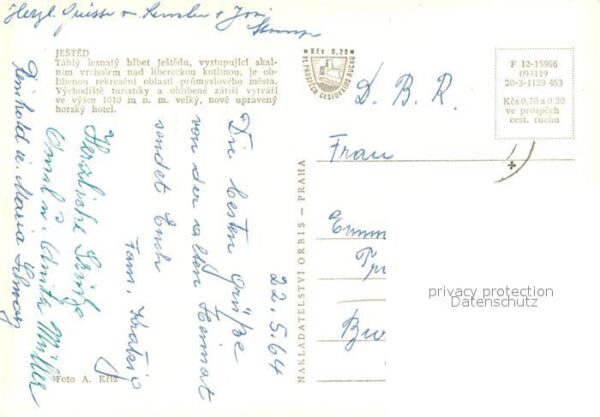 Herzl. Grüsse v.
JEŠTĚD
Táhlý lesnatý hřbet Ještědu, vystupující skal-
ním vrcholem nad libereckou kotlinou, je ob-
líbenou rekreační oblastí průmyslového města.
Východiště turistiky a oblíbené zátiší vytváří
ve výšce 1010 m n. m. velký, nově upravený
horský hotel.
Kčs 0,20
VE PROSPĚCH CESTOVNÍHO RUCHU
F 12-15966
093119
20-3-1129 463
Kčs 0,70 a 0,20
ve prospěch
cest. ruchu
D. B. R.
Frau
22.5.64
Die besten Grüße
von der alten Heimat
sendet Euch
Fam.
Herzliche Grüße
u. Anita Müller
Reinhold u. Maria
NAKLADATELSTVÍ ORBIS — PRAHA
privacy protection
Datenschutz
Foto A. Kříž